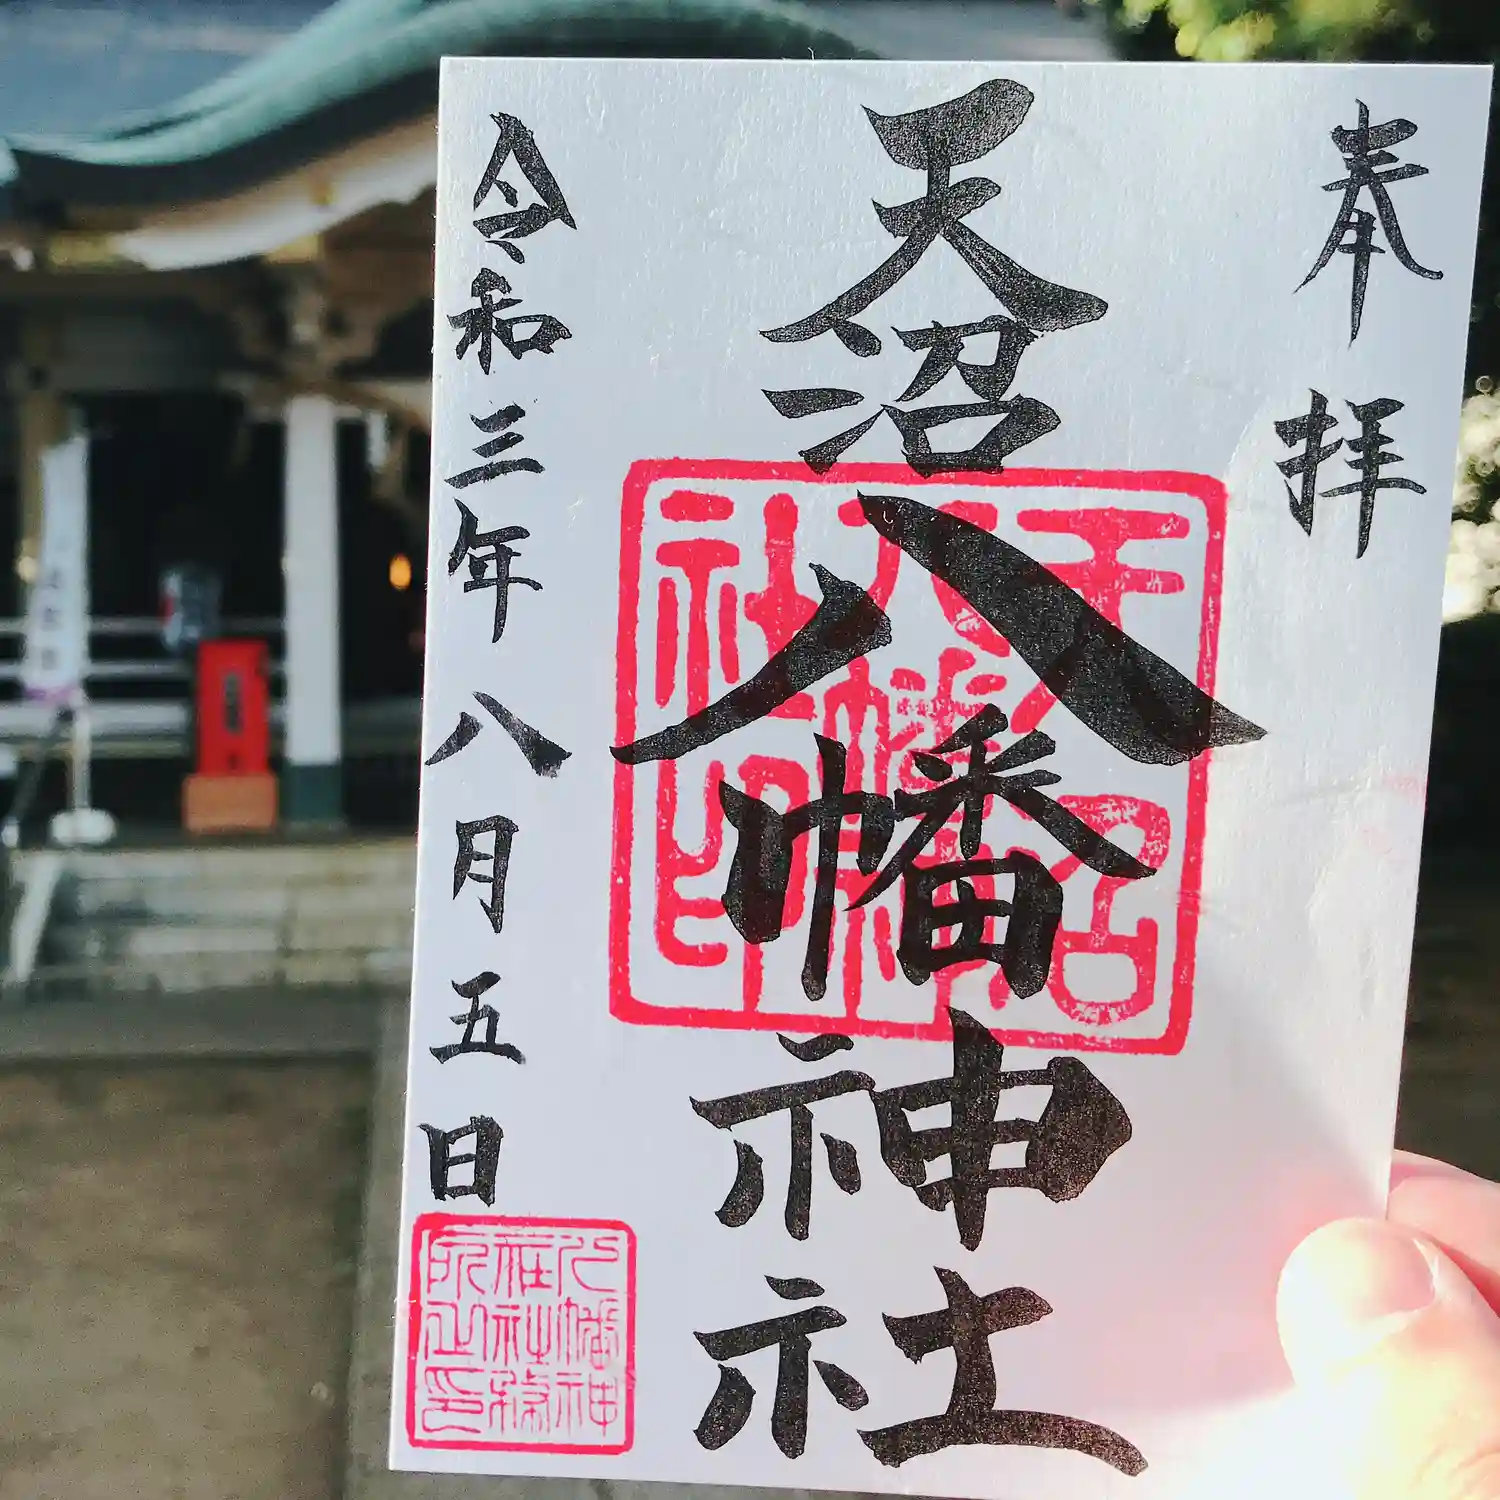 奉拝
天沼八幡神社
令和三年八月五日
天沼八幡神社印
八幡神社社務所之印